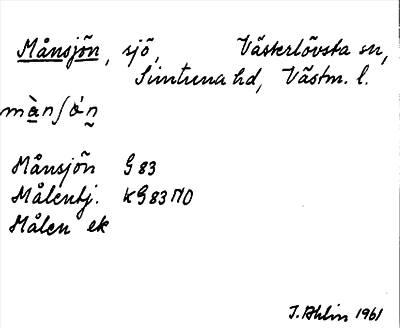 Månsjön, sjö, Västerlövsta sn,
Simtuna hd, Västm. l.
Månsjön G 83
Målentj. kG83NO
Målen ek
I. Ahlin 1961